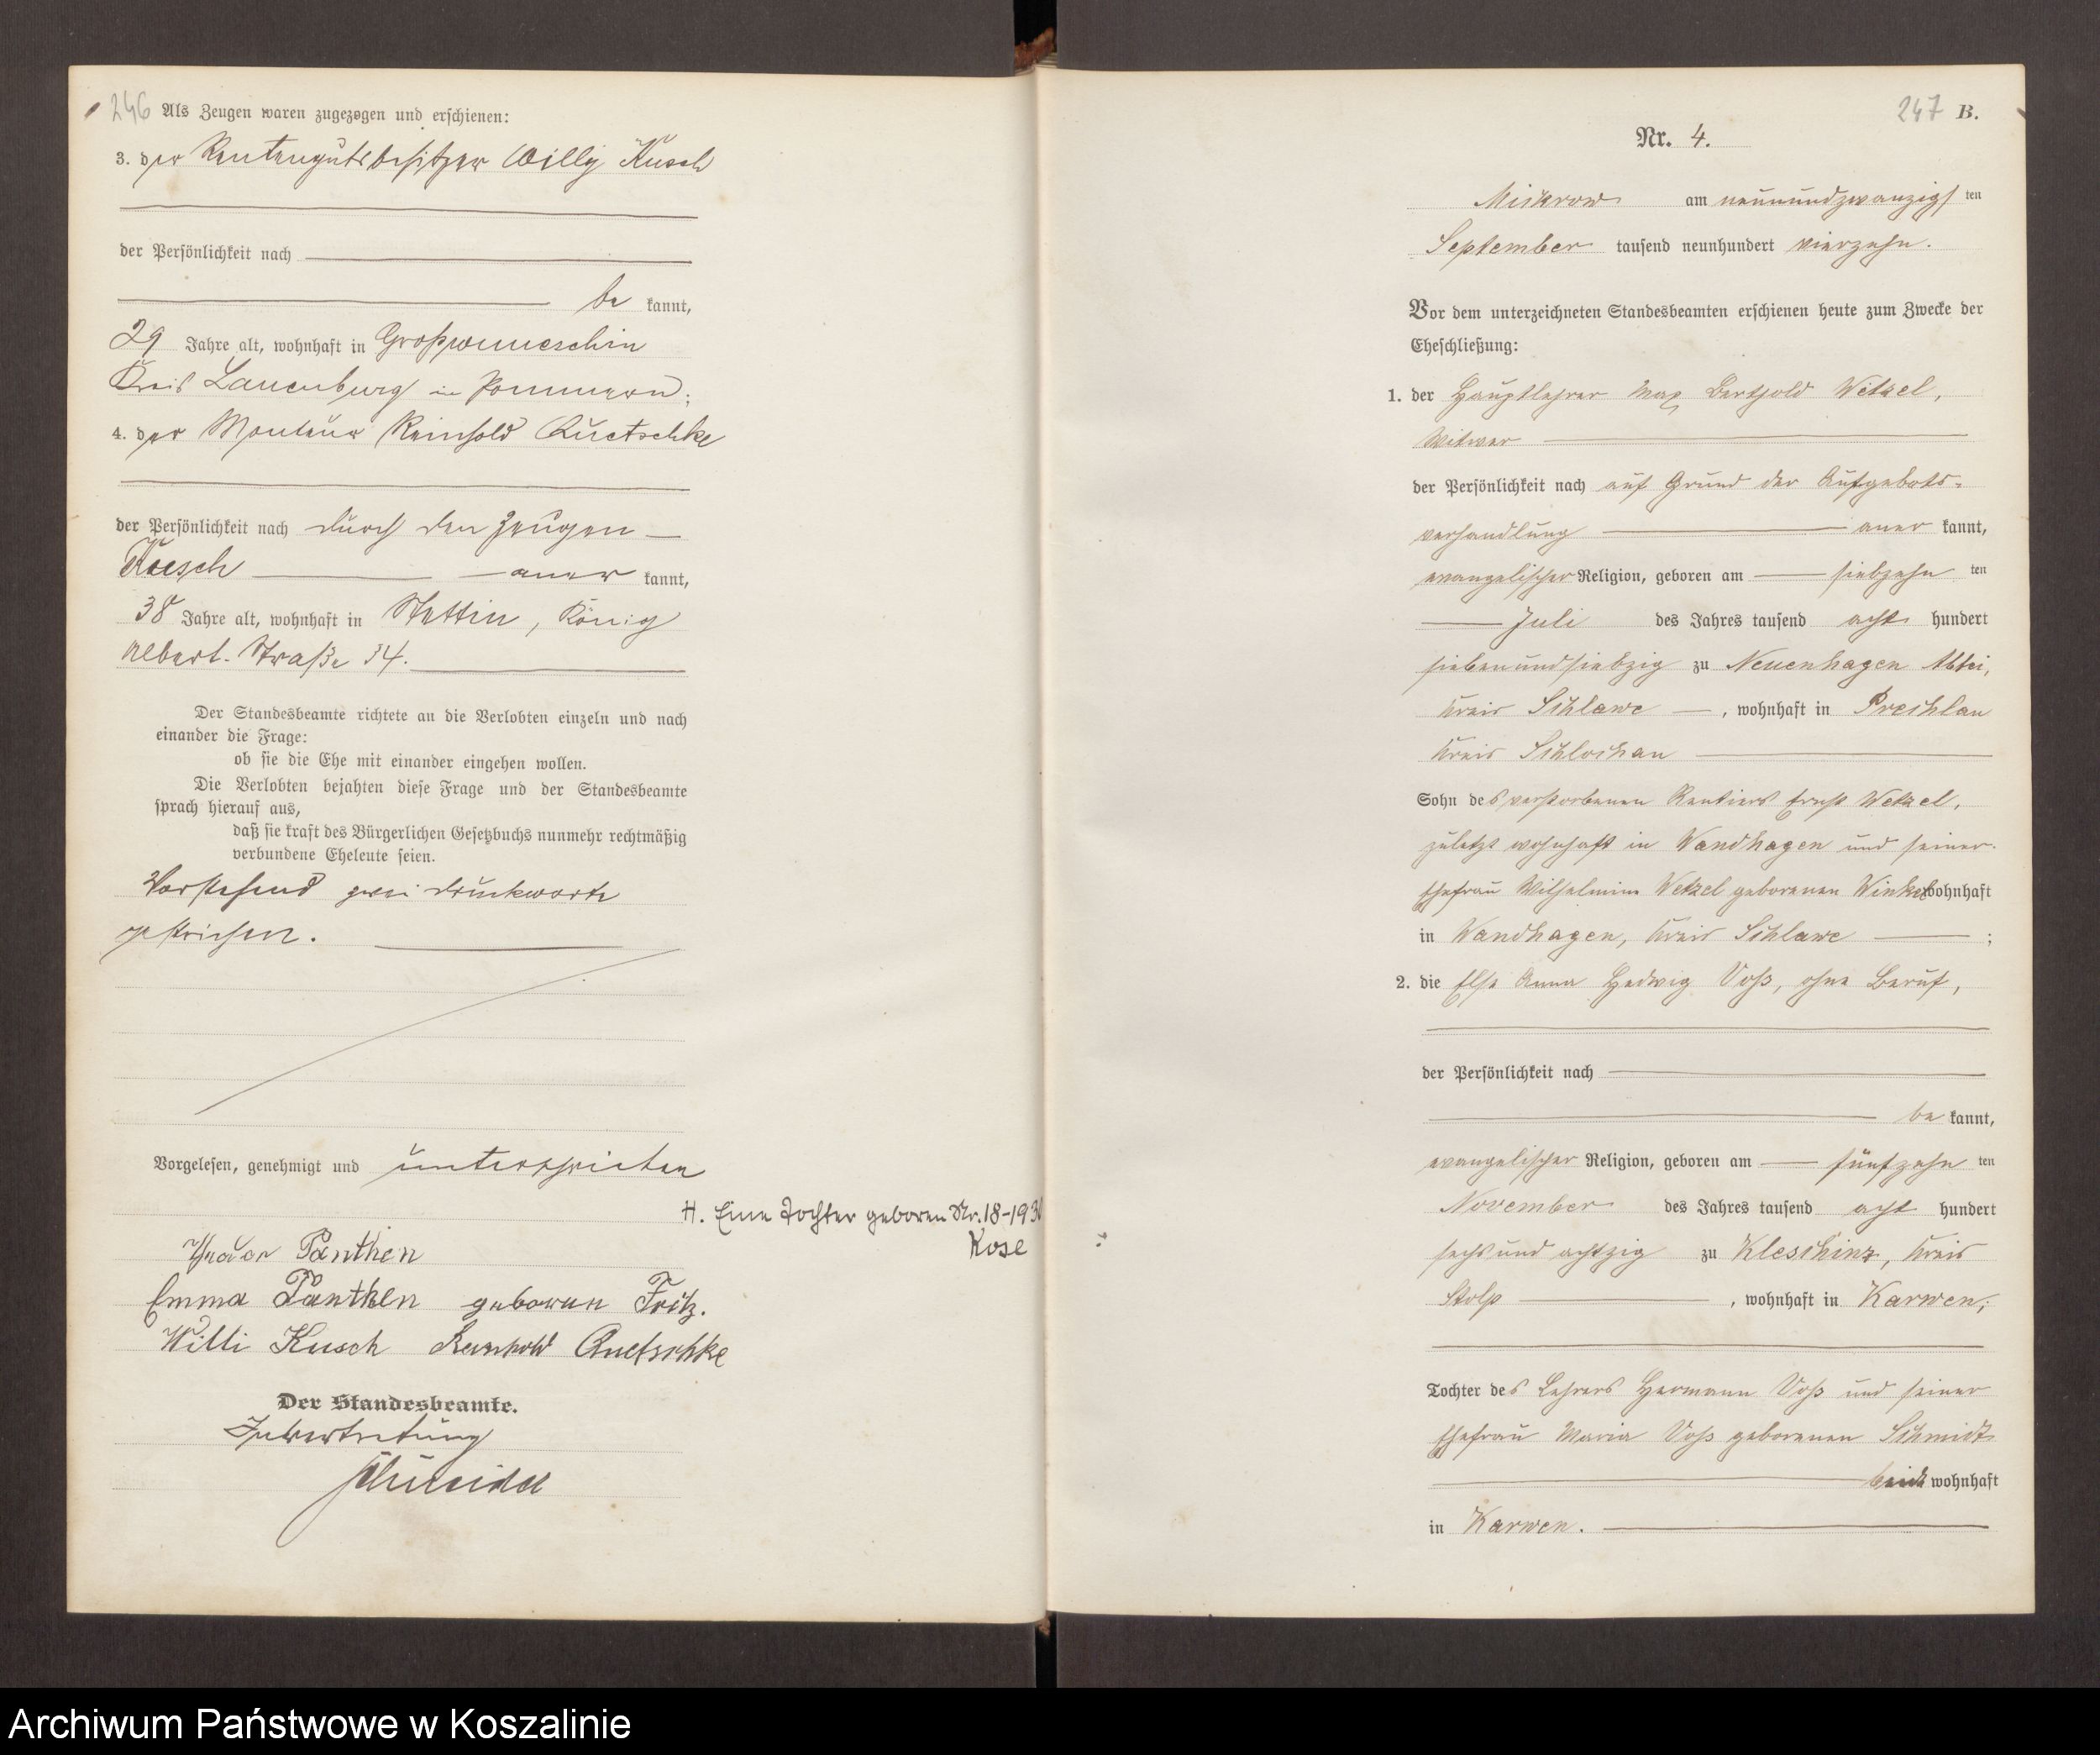 246 Als Zeugen waren zugezogen und erschienen:
3. der Rentengutsbesitzer Willy Kusch
der Persönlichkeit nach
be kannt,
29 Jahre alt, wohnhaft in Großwunneschin
Kreis Lauenburg in Pommern;
4. der Monteur Reinhold Quetschke
der Persönlichkeit nach durch den Zeugen
Kusch aner kannt,
38 Jahre alt, wohnhaft in Stettin, König
Albert-Straße 34.
Der Standesbeamte richtete an die Verlobten einzeln und nach
einander die Frage:
ob sie die Ehe mit einander eingehen wollen.
Die Verlobten bejahten diese Frage und der Standesbeamte
sprach hierauf aus,
daß sie kraft des Bürgerlichen Gesetzbuchs nunmehr rechtmäßig
verbundene Eheleute seien.
Vorstehend zwei Druckworte
gestrichen.
Vorgelesen, genehmigt und unterschrieben
H. Eine Tochter geboren Nr. 18-193
Kose
Panthen
Emma Panthen geborene Fritz.
Willi Kusch Reinhold Quetschke
Der Standesbeamte.
In Vertretung
247 B.
Nr. 4.
Mickrow am neunundzwanzigsten
September tausend neunhundert vierzehn.
Vor dem unterzeichneten Standesbeamten erschienen heute zum Zwecke der
Eheschließung:
1. der Hauptlehrer Max Berthold Wetzel,
Witwer
der Persönlichkeit nach auf Grund der Aufgebots-
verhandlung aner kannt,
evangelischer Religion, geboren am siebzehn ten
Juli des Jahres tausend acht hundert
siebenundsiebzig zu Neuenhagen Abtei,
Kreis Schlawe, wohnhaft in Prechlau
Kreis Schlochau
Sohn des verstorbenen Rentiers Ernst Wetzel,
zuletzt wohnhaft in Wandhagen und seiner
Ehefrau Wilhelmine Wetzel geborenen Winkel wohnhaft
in Wandhagen, Kreis Schlawe ;
2. die Else Anna Hedwig Voß, ohne Beruf,
der Persönlichkeit nach
be kannt,
evangelischer Religion, geboren am fünfzehn ten
November des Jahres tausend acht hundert
sechsundachtzig zu Kleschinz, Kreis
Stolp, wohnhaft in Karwen;
Tochter des Lehrers Hermann Voß und seiner
Ehefrau Maria Voß geborenen Schmidt
beide wohnhaft
in Karwen.
Archiwum Państwowe w Koszalinie